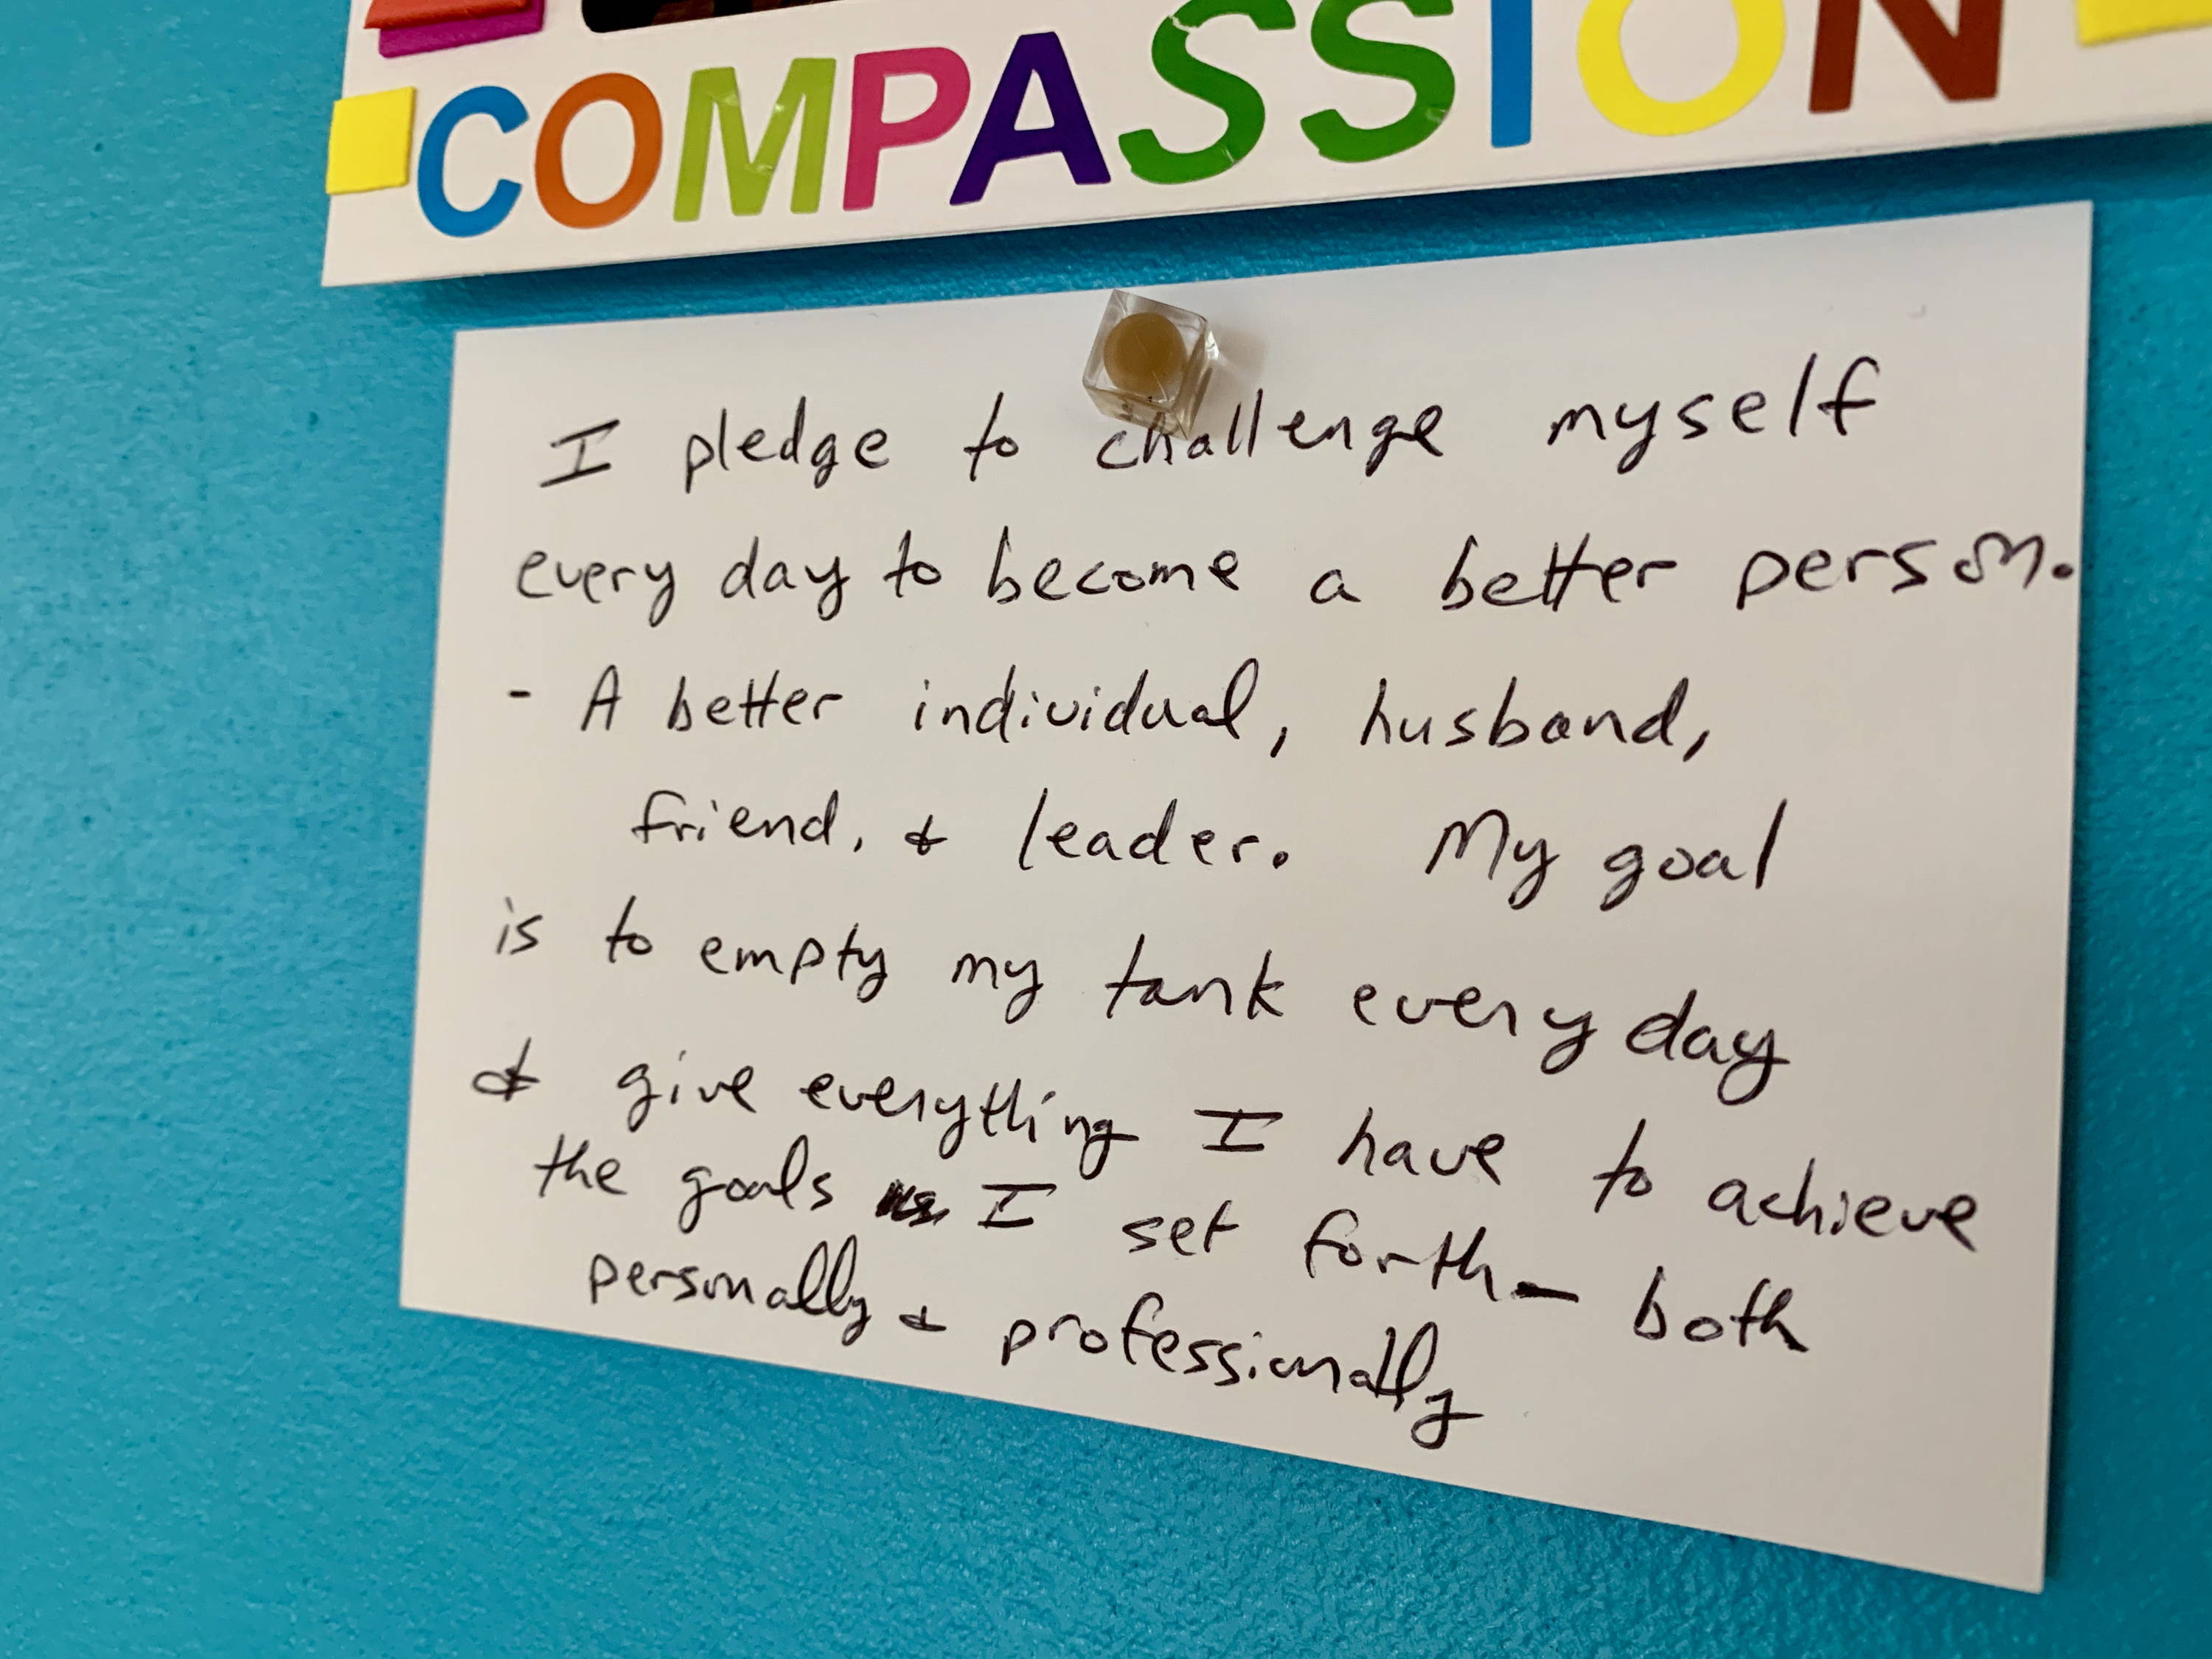 COMPASSION
I pledge to challenge myself
every day to become a better person.
- A better individual, husband,
friend, & leader. My goal
is to empty my tank every day
& give everything I have to achieve
the goals I set forth - both
personally & professionally